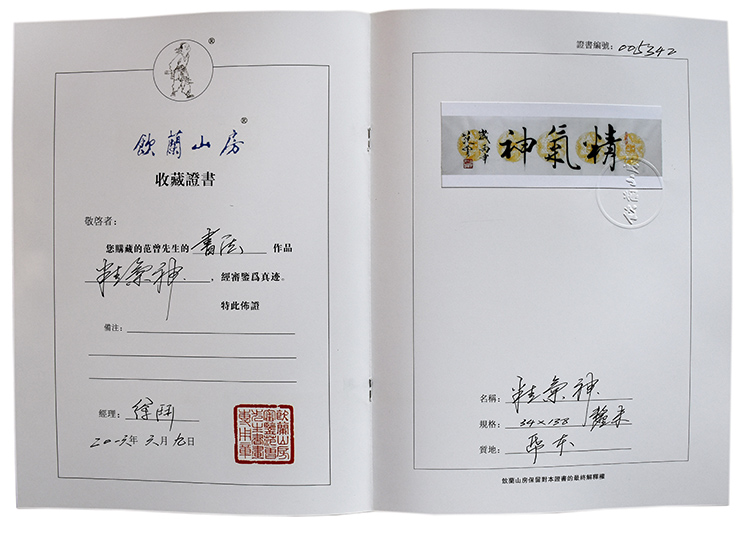 飲蘭山房®
收藏證書
敬啓者：
您購藏的范曾先生的 書法 作品
精氣神 ，經審鑒爲真迹。
特此佈證
備注：
經理：
二〇一六年六月九日
飲蘭山房
審鑒范曾
先生書畫
專用章
證書編號：005342
精氣神
飲蘭山房
名稱：精氣神
規格：34×138 釐米
質地：紙本
飲蘭山房保留對本證書的最終解釋權